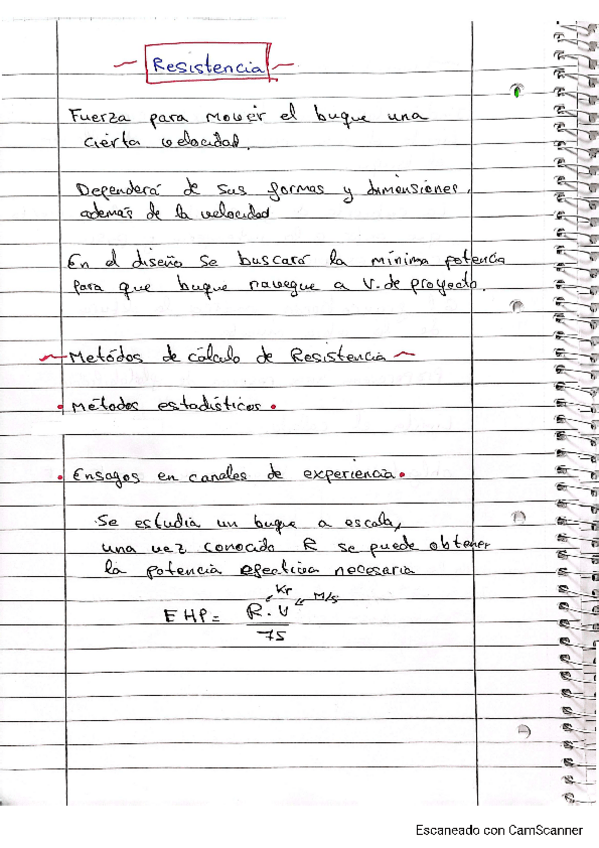 Resistencia
Fuerza para mover el buque una
cierta velocidad.
Dependerá de sus formas y dimensiones,
además de la velocidad
En el diseño se buscará la mínima potencia
para que buque navegue a V. de proyecto.
Metódos de cálculo de Resistencia
• Métodos estadísticos •
• Ensayos en canales de experiencia •
Se estudia un buque a escala,
una vez conocido R se puede obtener
la potencia efectiva necesaria
Kr M/s
EHP = R·V
75
Escaneado con CamScanner